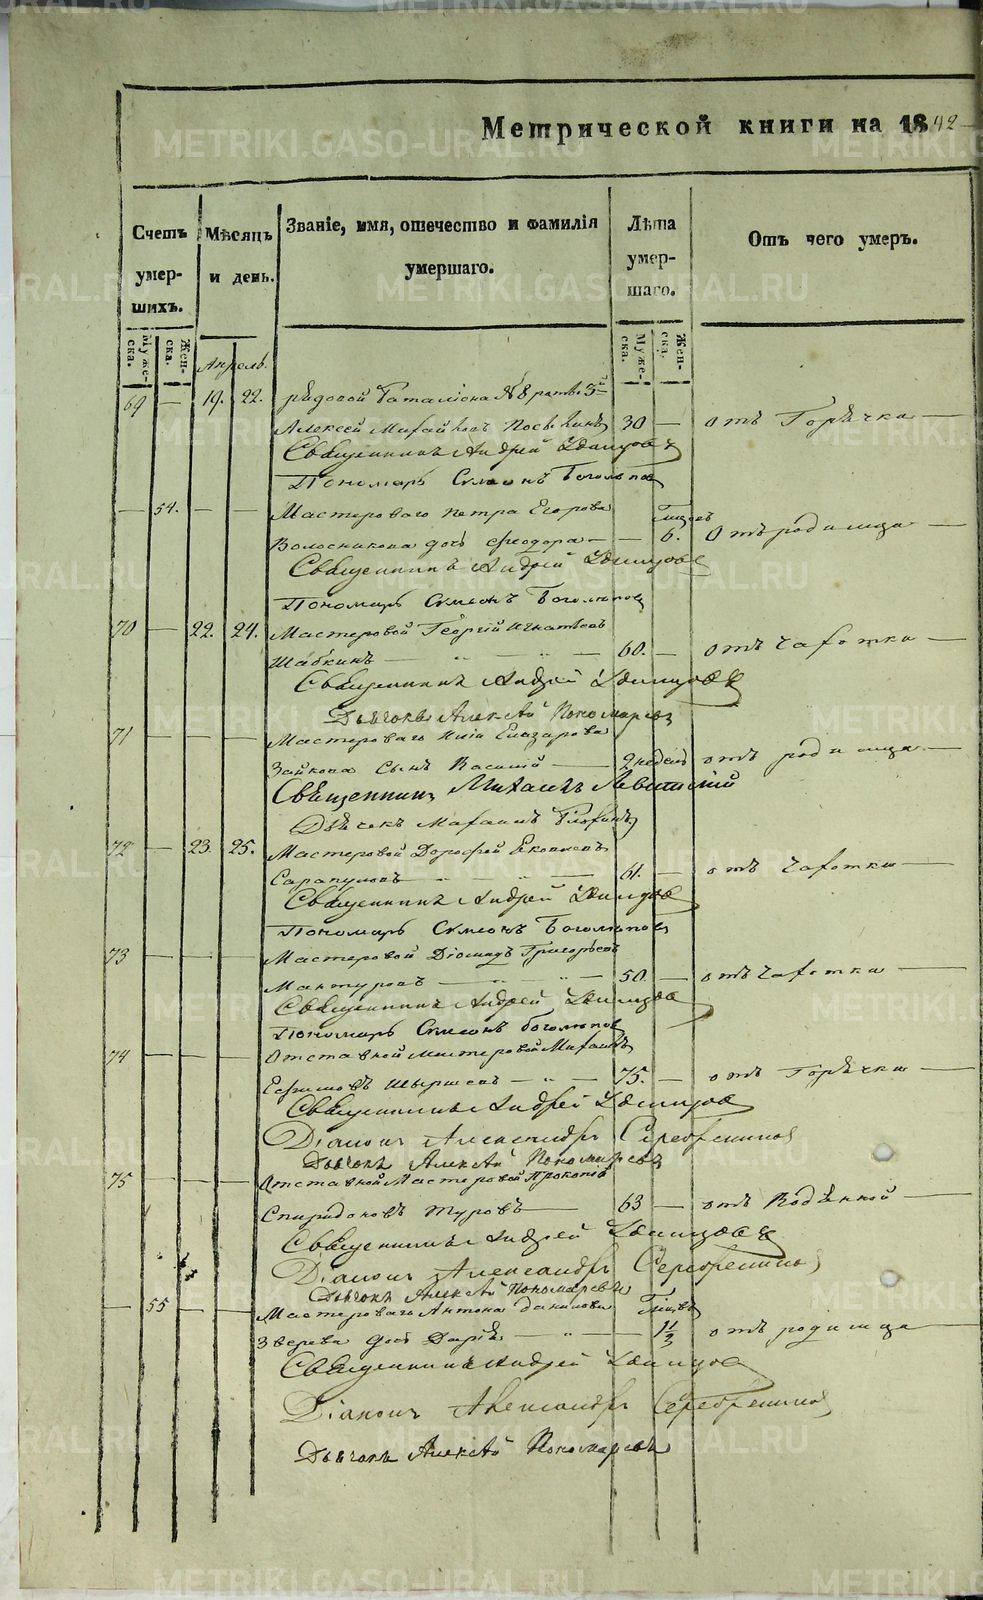 Метрической книги на 1842
Счетъ умершихъ.
Мѣсяцъ и день.
Званіе, имя, отечество и фамилія умершаго.
Лѣта умершаго.
Отъ чего умеръ.
Мужеска.
Женска.
Мужеска.
Женска.
Апрель.
69 — 19. 22. рядовой Баталіона №8 роты 3й
Алексей Михайловъ 30 — отъ Горячки —
Священникъ Андрей Удинцовъ
Пономарь Симеонъ Боголѣповъ
— 54. — — Мастероваго Петра Егорова месецъ
Волосникова дочь Феодора — — 6. Отъ родимца —
Священникъ Андрей Удинцовъ
Пономарь Симеонъ Боголѣповъ
70 — 22. 24. Мастеровой Георгій Игнатьевъ
Шабкинъ — " — " — 60. — отъ чахотки —
Священникъ Андрей Удинцовъ
Дьячокъ Алексѣй Пономаревъ
71 — — — Мастероваго Елизарова
Зайкова Сынъ Василій — 2 недель отъ родимца —
Священникъ Михаилъ Левитскій
Дьячекъ Михаилъ
72 — 23. 25. Мастеровой Дорофей
Сарапуловъ — " — " — 61. — отъ чахотки —
Священникъ Андрей Удинцовъ
Пономарь Симеонъ Боголѣповъ
73 — — — Мастеровой Діомидъ Григорьевъ
Мантуровъ — " — 50. — отъ чахотки —
Священникъ Андрей Удинцовъ
Пономарь Симеонъ Боголѣповъ
74 — — — Отставной мастеровой Михаилъ
Ефимовъ — " — 75. — отъ Горячки —
Священникъ Андрей Удинцовъ
Діаконъ Александръ Серебренниковъ
Дьячокъ Алексѣй Пономаревъ
75 — — — Отставной Мастеровой Прокопій
Спиридоновъ Туровъ — 63 — отъ Водяной —
Священникъ Андрей Удинцовъ
Діаконъ Александръ Серебренниковъ
Дьячокъ Алексѣй Пономаревъ
— 55 — — Мастероваго Антона Данилова
Зверева дочь Дарія — " — — отъ родимца —
Священникъ Андрей Удинцовъ
Діаконъ Александръ Серебренниковъ
Дьячокъ Алексѣй Пономаревъ
METRIKI.GASO-URAL.RU